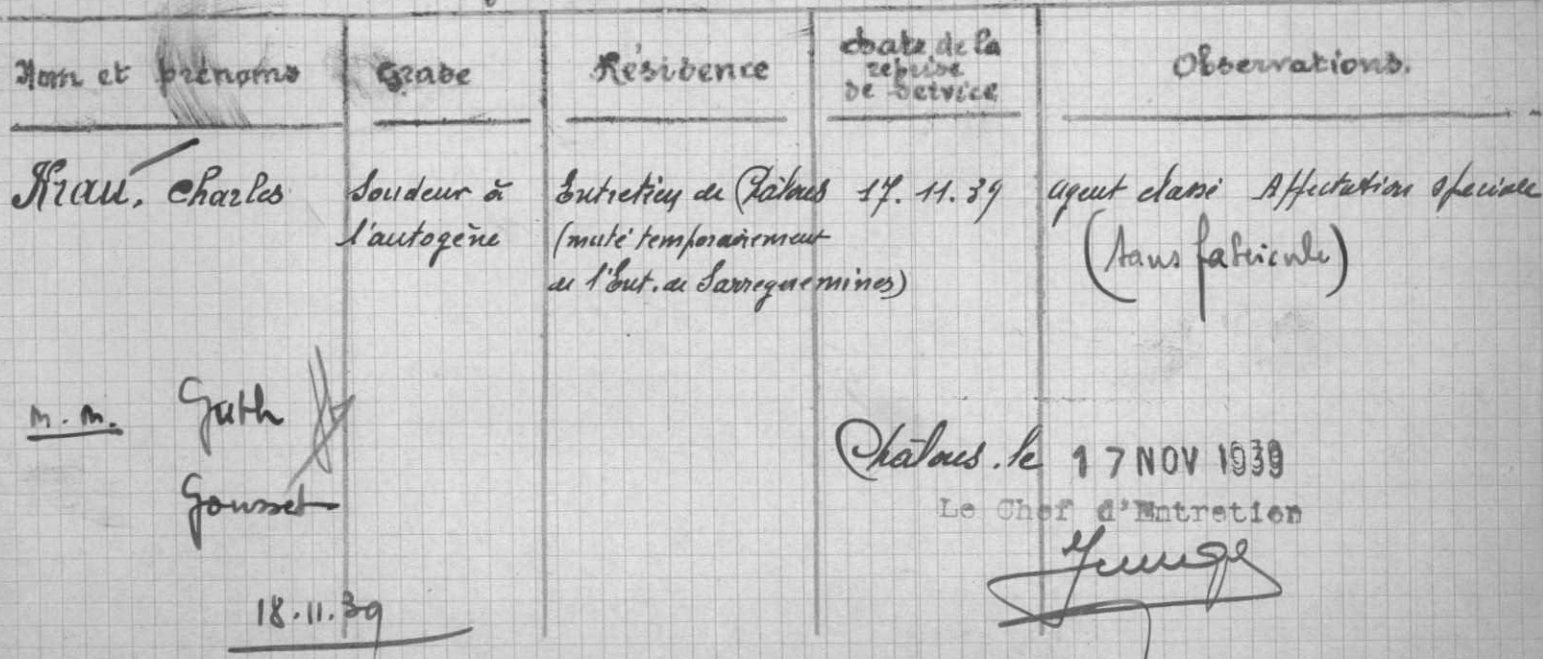 Nom et prénoms
Grade
Résidence
Date de la
reprise
de service
Observations.
Krau, Charles
Soudeur à
l'autogène
Entretien de Châlons
(muté temporairement
de l'Ent. de Sarreguemines)
17.11.39
agent classé Affectation spéciale
(sans fascicule)
m.m. Guth
Gousset
18.11.39
Châlons. le 17 NOV 1939
Le Chef d'Entretien